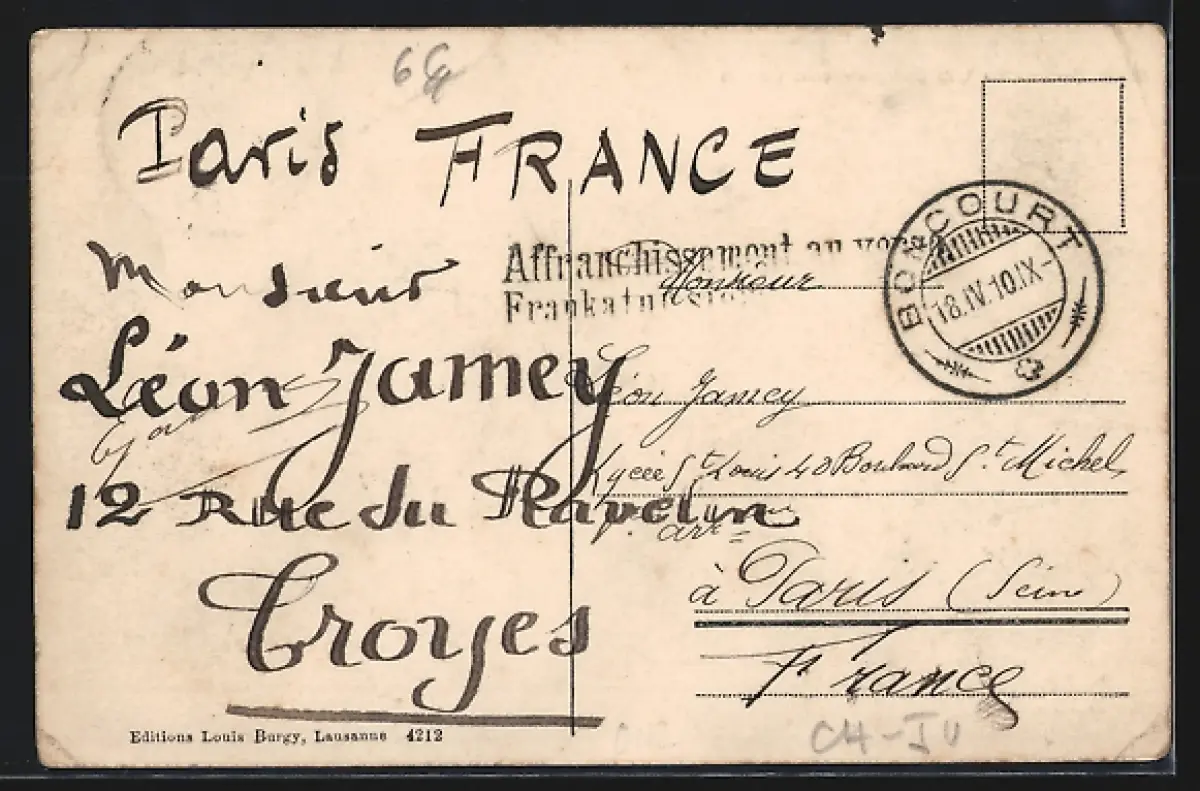 6
Paris FRANCE
Monsieur
Léon Jamey
12 Rue du Ravelin
Troyes
Editions Louis Burgy, Lausanne 4212
Affranchissement au
BONCOURT
18.IV.10.IX-
Monsieur
Léon Jamey
Lycée St Louis 40 Boulvard St. Michel
à Paris (Seine)
France
CH-JU